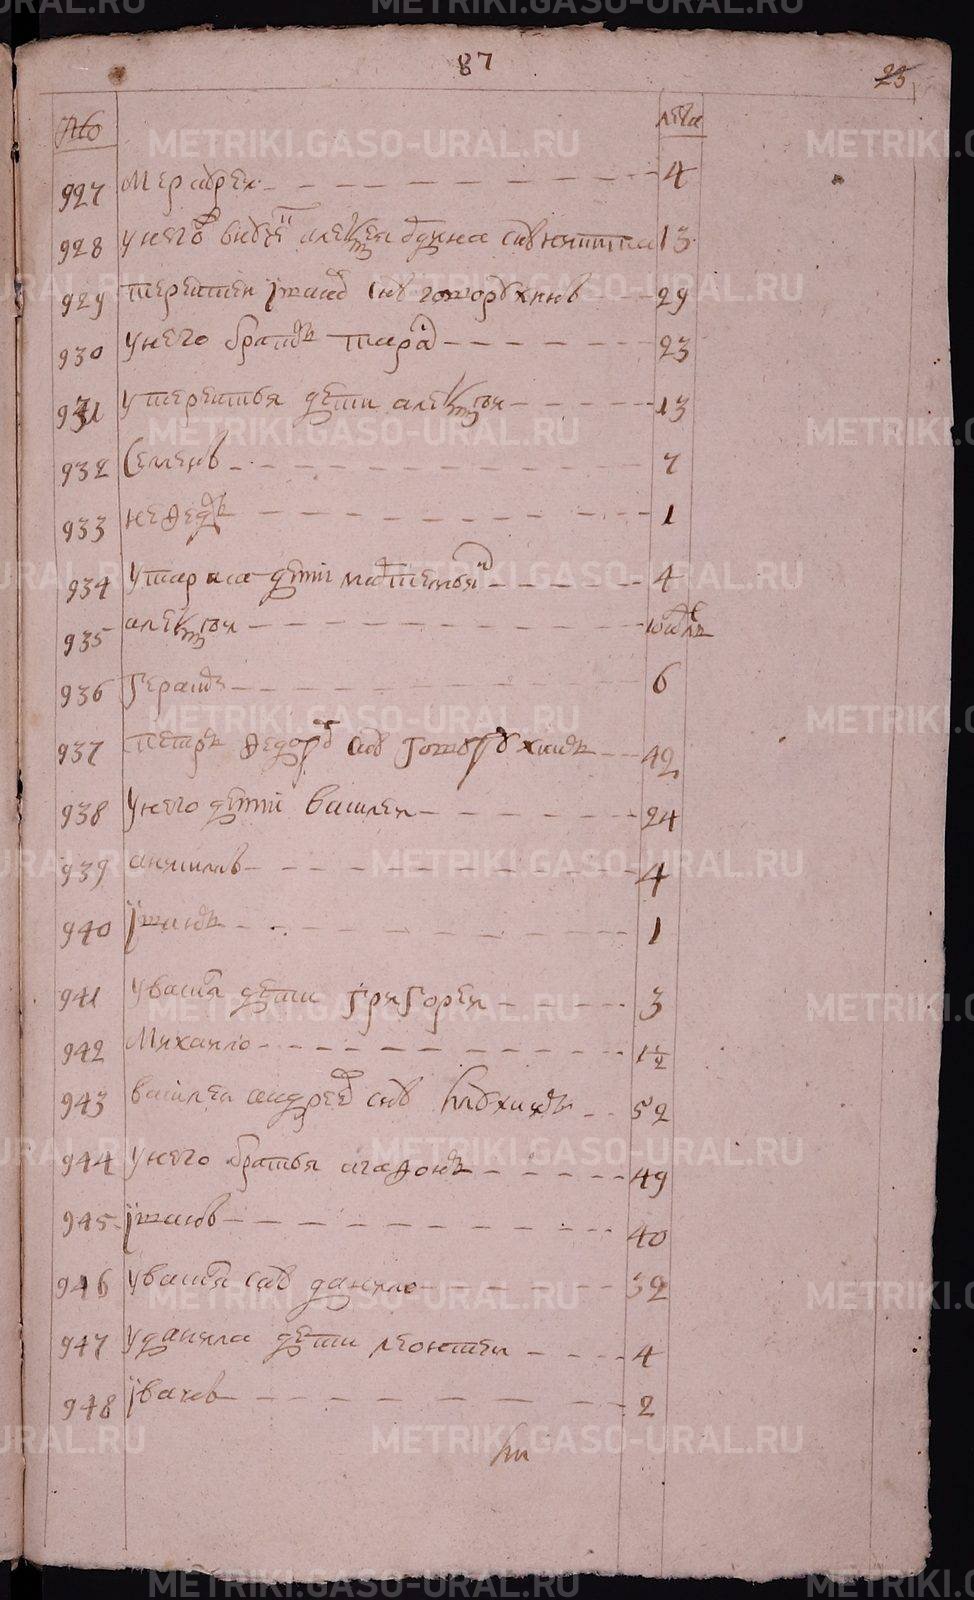 87
23
№
лета
927 Мерκурей 4
928 у него внук алексея сын никита 13
929 терентей иванов сын гоморухинъ 29
930 у него братъ тарас 23
931 у терентья дети алексей 13
932 Семенъ 7
933 нефедъ 1
934 у тараса дети матвей 4
935 алексей
936 Герасим 6
937 петръ федоров сын Гоморухинъ 42
938 у него дети василей 24
939 данилъ 4
940 иванъ 1
941 у василья дети григорей 3
942 Михаило 1 1/2
943 василей андреев сын 52
944 у него братья агафонъ 49
945 иванъ 40
946 у василья сын данило 32
947 у данила дети леонтей 4
948 2
METRIKI.GASO-URAL.RU